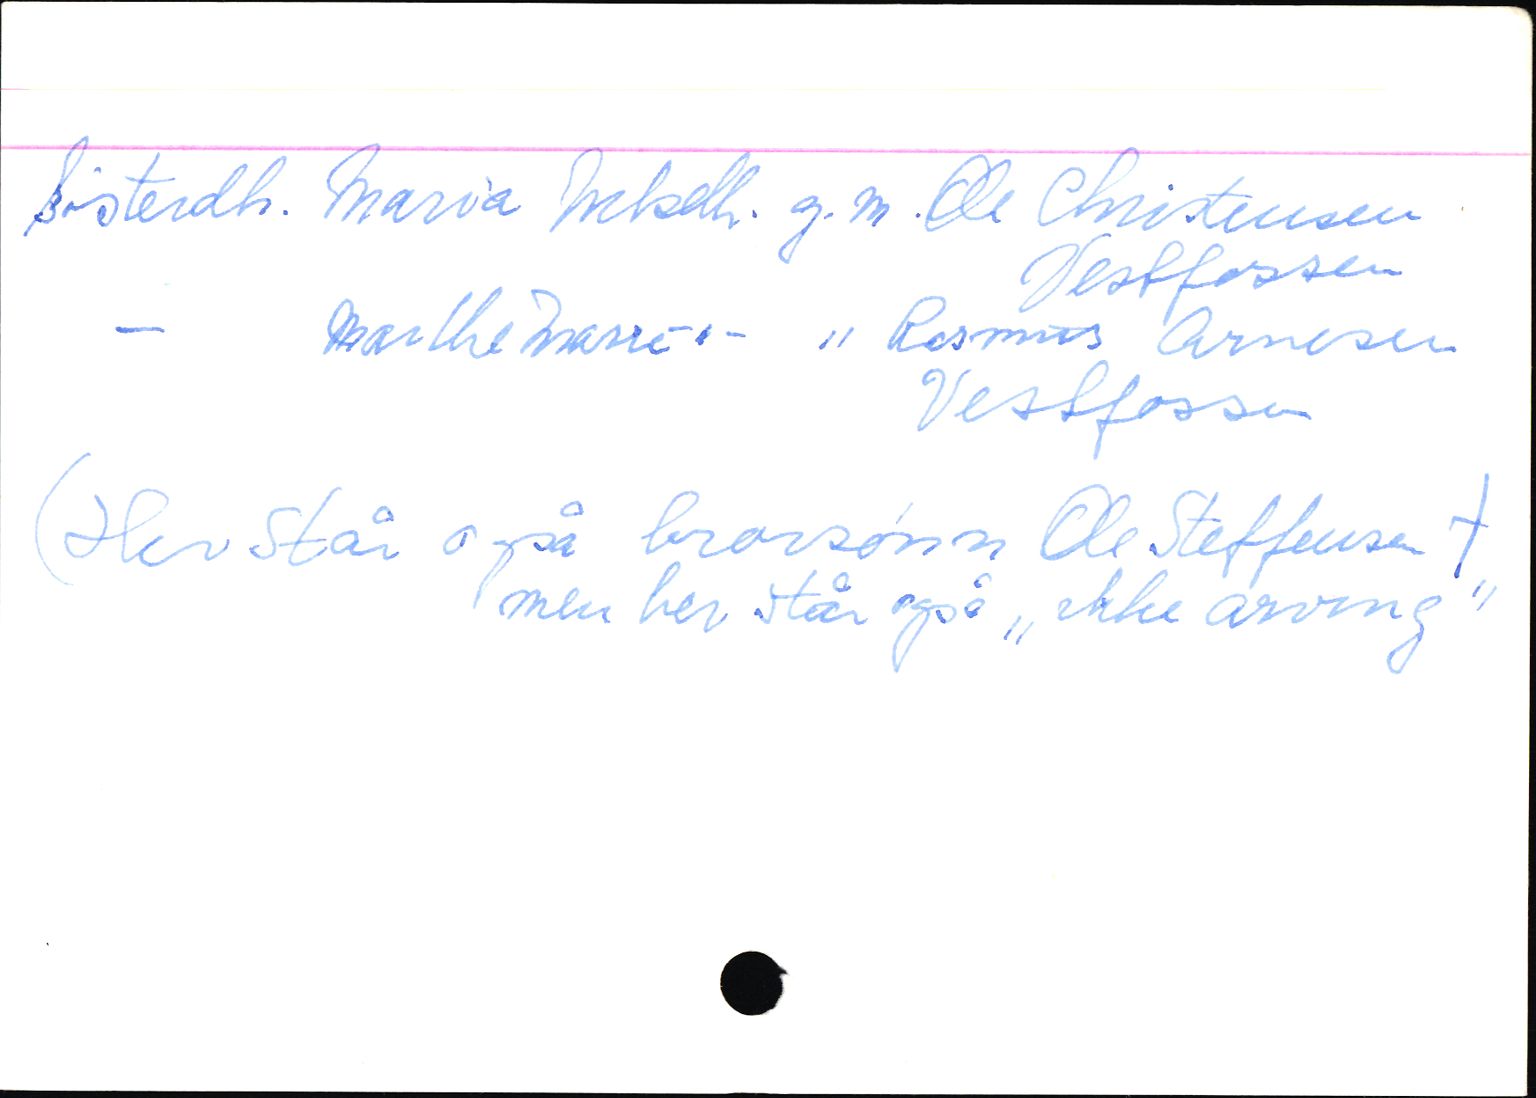 Søsterdtr. Maria Nelsdtr. g.m. Ole Christensen
Vestfossen
— Marthe Marie - " - " Rasmus Arnesen
Vestfossen
(Her står også brorsønn Ole Steffensen †
men her står også „ikke arving"